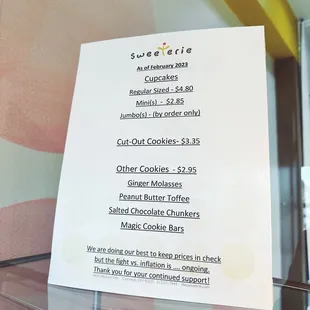 sweeterie
As of February 2023
Cupcakes
Regular Sized - $4.80
Mini(s) - $2.85
Jumbo(s) - (by order only)
Cut-Out Cookies- $3.35
Other Cookies - $2.95
Ginger Molasses
Peanut Butter Toffee
Salted Chocolate Chunkers
Magic Cookie Bars
We are doing our best to keep prices in check
but the fight vs. inflation is .... ongoing.
Thank you for your continued support!